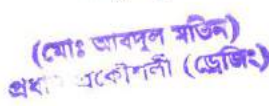 (মোঃ আবদুল মতিন)
প্রধান প্রকৌশলী (ড্রেজিং)